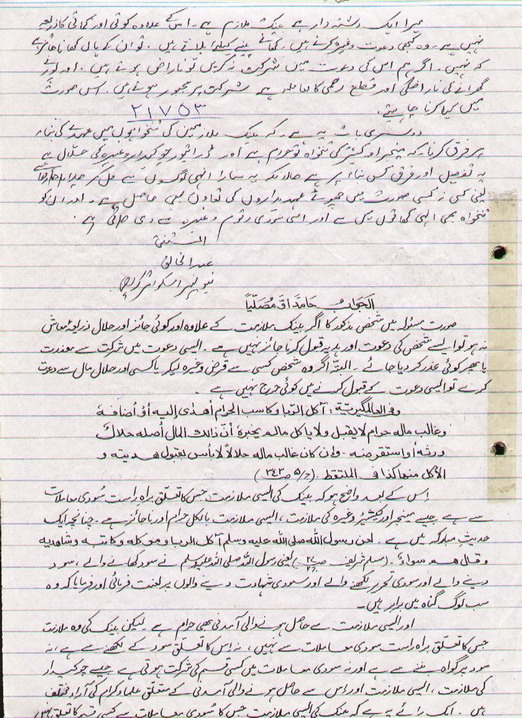 میرا ایک رشتہ دار ہے بینک ملازم ہے، اس کے علاوہ کوئی اور کمائی کا ذریعہ
نہیں ہے، وہ کبھی دعوت وغیرہ کرتے ہیں، کھانے پینے کیلئے بلاتے ہیں، تو ان کے ہاں کھانا جائز ہے
کہ نہیں۔ اگر ہم اس کی دعوت میں شرکت نہ کریں تو ناراض ہوتے ہیں، اور پورے
گھرانے کی ناراضگی اور قطع رحمی کا معاملہ ہے شرکت پر مجبور ہوتے ہیں، اس صورت
میں کیا کرنا چاہئے۔
۲۱۷۵۳
دوسری بات یہ ہے۔ کہ بینک ملازمین کی تنخواہوں میں عہدے کی بناء
پر فرق کرنا کہ مینجر اور کیشئر کی تنخواہ تو حرام ہے اور ڈرائیور چوکیدار وغیرہ کی حلال ہے
یہ تفصیل اور فرق کس بناء پر ہے حالانکہ یہ سارا انہی لوگوں سے مل کر چلایا جاتا ہے
یعنی کسی نہ کسی صورت میں چھوٹے عہدیداروں کی تعاون بھی حاصل ہے، اور ان کو
تنخواہ بھی اسی سودی رقوم وغیرہ سے دی جاتی ہے۔
المستفتی
عبدالخالق
الجواب حامداً ومصلیاً
صورت مسئولہ میں شخص مذکور کا اگر بینک ملازمت کے علاوہ اور کوئی جائز اور حلال ذریعہ معاش
نہ ہو تو ایسے شخص کی دعوت اور ہدیہ قبول کرنا جائز نہیں ہے۔ ایسی دعوت میں شرکت سے معذرت
یا پھر کوئی عذر کر دیا جائے۔ البتہ اگر وہ شخص کسی سے قرض وغیرہ لیکر یا کسی اور حلال مال سے دعوت
کرے تو ایسی دعوت کے قبول کرنے میں کوئی حرج نہیں ہے۔
وفی العالمگیریة: آکل الربا وکاسب الحرام اھدٰی الیه أو أضافه
وغالب ماله حرام لا یقبل ولا یأکل ماله یخبره أن ذالك المال أصله حلال
ورثه أو استقرضه۔ وان کان غالب ماله حلالاً لا بأس بقبول ھدیته و
الأکل منھا کذا فی الملتقط۔ (ج/۵ ص ۳۴۳)
اس کے بعد واضح ہو کہ بینک کی ایسی ملازمت جس کا تعلق براہ راست سودی معاملات
سے ہے جیسے منیجر اور کیشیئر وغیرہ کی ملازمت، ایسی ملازمت بالکل حرام اور ناجائز ہے۔ چنانچہ ایک
حدیث مبارکہ میں ہے۔ لعن رسول اللہ صلی اللہ علیہ وسلم آکل الربا وموکله وکاتبه وشاھدیه
وقال ھم سواء۔ (مسلم شریف ص ۲۷) یعنی رسول اللہ صلی اللہ علیہ وسلم نے سود کھانے والے، سود
دینے والے اور سودی تحریر لکھنے والے اور سودی شہادت دینے والوں پر لعنت فرمائی اور فرمایا کہ وہ
سب لوگ گناہ میں برابر ہیں۔
اور ایسی ملازمت سے حاصل ہونے والی آمدنی بھی حرام ہے۔ لیکن بینک کی وہ ملازمت
جس کا تعلق براہ راست سودی معاملات سے نہیں، نہ اس کا تعلق سود کے لکھنے سے ہے، نہ
سود پر گواہ بننے سے ہے اور نہ سودی معاملات میں کسی قسم کی شرکت ہوتی ہے جیسے چوکیدار
کی ملازمت، ایسی ملازمت اور اس سے حاصل ہونے والی آمدنی کے متعلق علماء کرام کی آراء مختلف
ہیں۔ ایک رائے یہ ہے کہ بینک کی ایسی ملازمت جس کا سودی معاملات سے کسی قسم کا تعلق نہیں